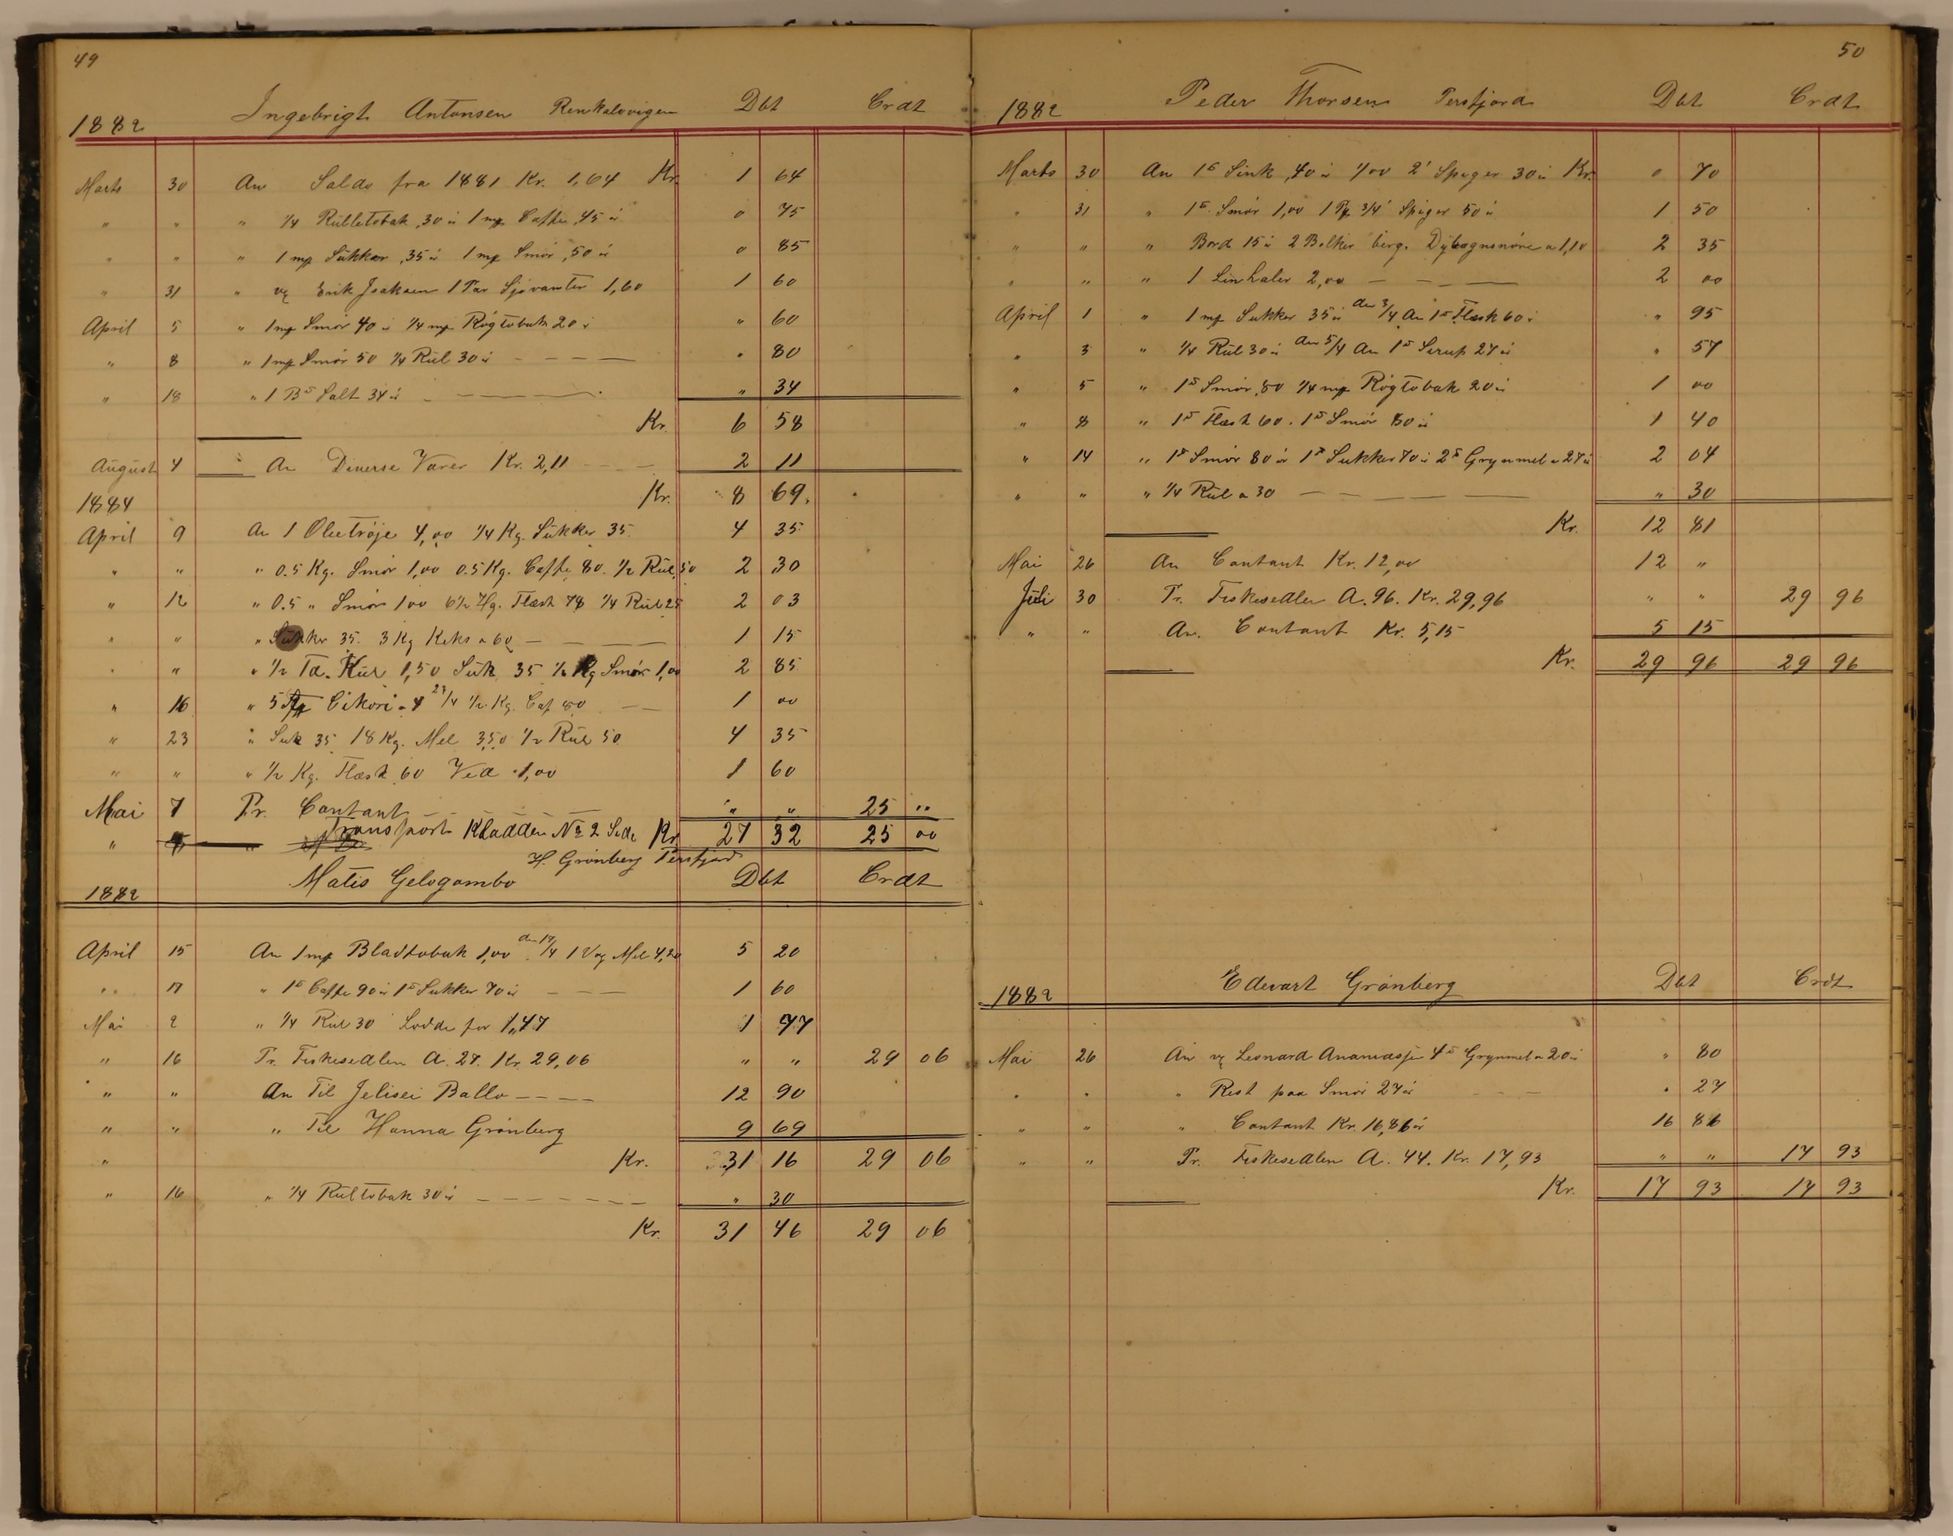 49
1882 Ingebrigt Antonsen Renkalovigen Dbt Crdt
Marts 30 An Saldo fra 1881 Kr. 1,64 Kr. 1 64
" " " 1/4 Rulletobak ,30 ü 1 mp Caffe ,45 ü 0 75
" " " 1 mp Sukker ,35 ü 1 mp Smör ,50 ü 0 85
" 31 " vg Erik Isaksen 1 Par Sjövanter 1,60 1 60
April 5 " 1 mp Smör 40 ü 1/4 mp Rögtobak 20 ü " 60
" 8 " 1 mp Smör 50 1/4 Rul 30 ü " 80
" 18 " 1 B Salt 34 ü " 34
Kr. 6 58
August 4 An Diverse Varer Kr. 2,11 2 11
Kr. 8 69.
1884
April 9 An 1 Olietröje 4,00 1/4 Kg. Sukker 35. 4 35
" " " 0.5 Kg. Smör 1,00 0.5 Kg. Caffe 80. 1/2 Rul 50 2 30
" 12 " 0.5 " Smör 1 00 6 1/2 Hg. Flæsk 78 1/4 Rul 25 2 03
" " " Sukker 35. 3 Kg Keks a 60 1 15
" " " 1/2 Td. Kul 1,50 Suk 35 1/2 Kg Smör 1,00 2 85
" 16 " 5 Cikori a 4 23/4 1/2 Kg. Caf 80 1 00
" 23 " Suk 35 18 Kg. Mel 3,50 1/2 Rul 50 4 35
" " " 1/2 Kg. Flæsk 60 Ved 1,00 1 60
Mai 7 Pr. Contant " " 25 "
" " Transport Kladden No 2 Side Kr 27 32 25 00
H. Grönberg Tersfjord
1882 Matis Gelogambo Dbt Crdt
April 15 An 1 mp Bladtobak 1,00 den 17/4 1 Vog Mel 4,20 5 20
" 17 " 1 Caffe 90 ü 1 Sukker 70 ü 1 60
Mai 2 " 1/4 Rul 30 Lodde for 1,47 1 77
" 16 Pr. Fiskesedlen A. 27. Kr. 29,06 " " 29 06
" " An Til Jelisei Ballo 12 90
" " " Til Hanna Grönberg 9 69
" Kr. 31 16 29 06
" 16 " 1/4 Rultobak 30 ü " 30
Kr. 31 46 29 06
50
1882 Peder Thorsen Tersfjord Dbt Crdt
Marts 30 An 1 Sink ,40 ü 1/00 2" Spiger 30 ü Kr. 0 70
" 31 " 1 Smör 1,00 1 Pk 3/4" Spiger 50 ü 1 50
" " " Bord 15 ü 2 Bolker berg. Dybsognsnöre a 1,10 2 35
" " " 1 Linhaler 2,00 2 00
April 1 " 1 mp Sukker 35 ü den 3/4 An 1 Flæsk 60 ü " 95
" 3 " 1/4 Rul 30 ü den 5/4 An 1 Sirup 27 ü " 57
" 5 " 1 Smör ,80 1/4 mp Rögtobak 20 ü 1 00
" 8 " 1 Flæsk 60. 1 Smör 80 ü 1 40
" 14 " 1 Smör 80 ü 1 Sukker 70 ü 2 Grynmel a 27 ü 2 04
" " " 1/4 Rul a 30 " 30
Kr. 12 81
Mai 26 An Contant Kr. 12,00 12 "
Juli 30 Pr. Fiskesedlen A. 96. Kr. 29,96 " " 29 96
" " An. Contant Kr. 5,15 5 15
Kr. 29 96 29 96
1882 Edevart Grönberg Dbt Crdt
Mai 26 An vg Leonard 4 Grynmel a 20 ü " 80
" " " Rest paa Smör 27 ü " 27
" " " Contant Kr. 16,86 ü 16 86
" " Pr. Fiskesedlen A. 44. Kr. 17,93 " " 17 93
Kr. 17 93 17 93